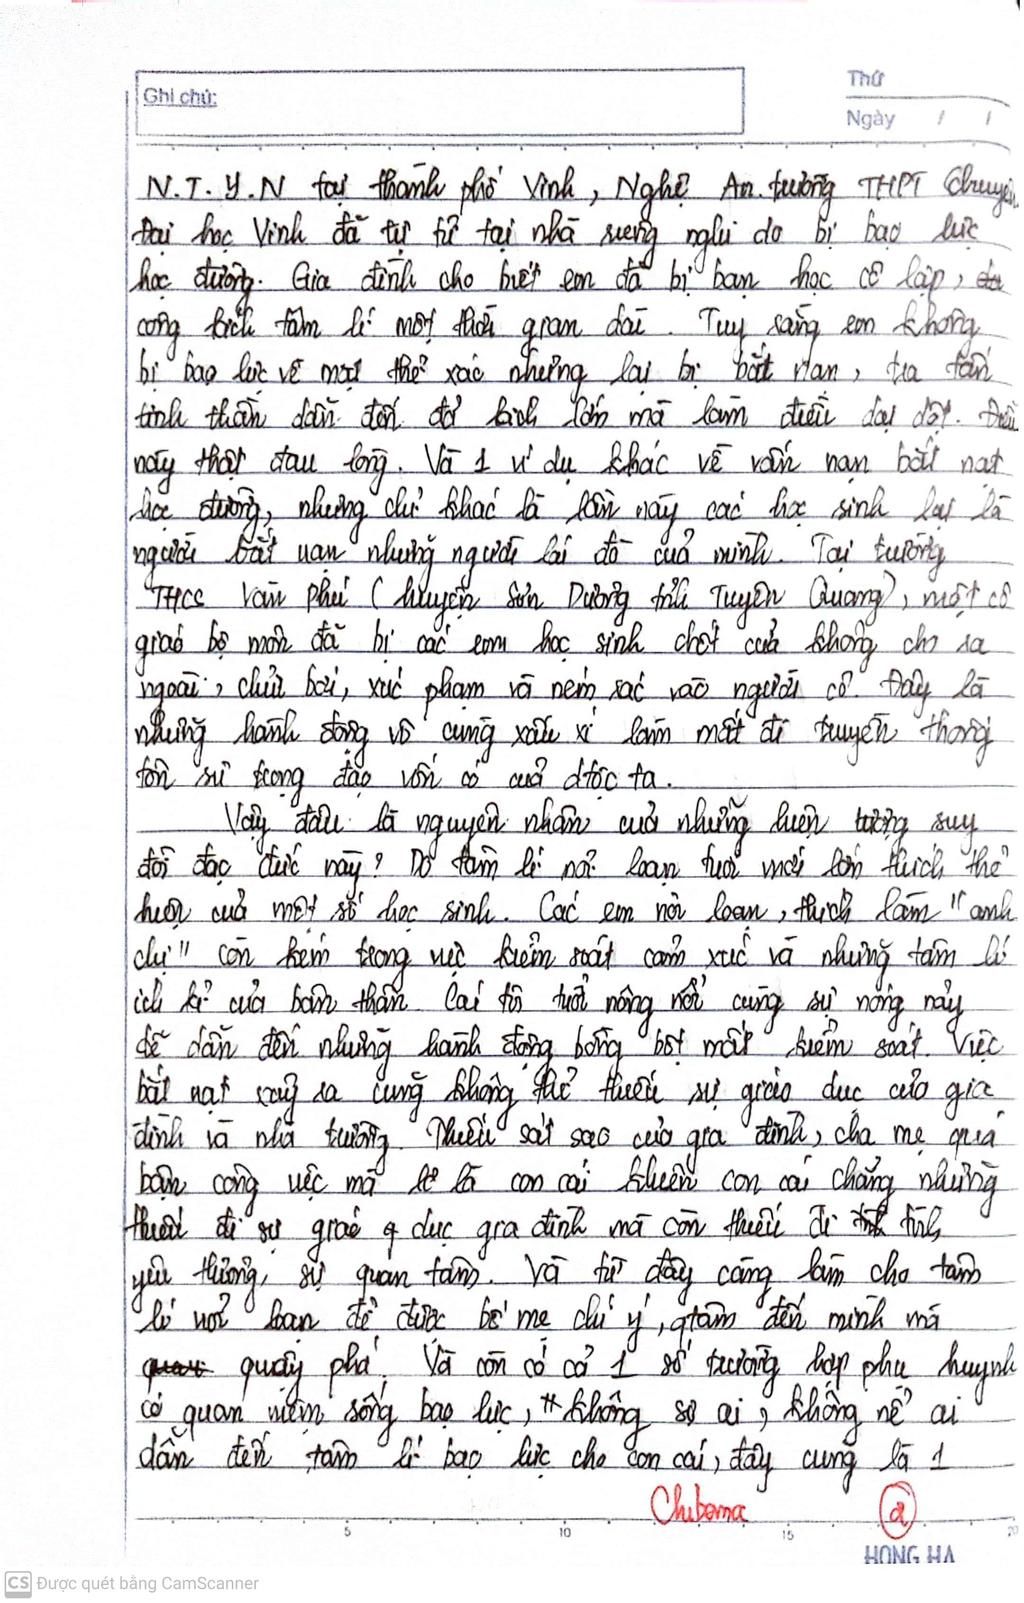 Ghi chú:
Thứ
Ngày / /
N.T.Y.N tại thành phố Vinh, Nghệ An. trường THPT Chuyên
Đại học Vinh đã tự tử tại nhà riêng nghi do bị bạo lực
học đường. Gia đình cho biết em đã bị bạn học cô lập,
công kích tâm lí một thời gian dài. Tuy rằng em không
bị bạo lực về mặt thể xác nhưng lại bị bắt nạn, tra tấn
tinh thần dẫn đến đả kích lớn mà làm điều dại dột. Điều
này thật đau lòng. Và 1 ví dụ khác về vấn nạn bắt nạt
học đường, nhưng chỉ khác là lần này các học sinh lại là
người bắt nạn những người lái đò của mình. Tại trường
THCS Văn Phú (huyện Sơn Dương tỉnh Tuyên Quang), một cô
giáo bộ môn đã bị các em học sinh chốt cửa không cho ra
ngoài, chửi bới, xúc phạm và ném rác vào người cô. Đây là
những hành động vô cùng xấu xí làm mất đi truyền thống
tôn sư trọng đạo vốn có của dtộc ta.
Vậy đâu là nguyên nhân của những hiện tượng suy
đồi đạo đức này? Do tâm lí nổi loạn tuổi mới lớn thích thể
hiện của một số học sinh. Các em nổi loạn, thích làm "anh
chị" còn kém trong việc kiểm soát cảm xúc và những tâm lí
ích kỉ của bản thân. Cái tôi tuổi nông nổi cùng sự nóng nảy
dễ dẫn đến những hành động bồng bột mất kiểm soát. Việc
bắt nạt xảy ra cũng không thể thiếu sự giáo dục của gia
đình và nhà trường. Thiếu sát sao của gia đình, cha mẹ quá
bận công việc mà lơ là con cái khiến con cái chẳng những
thiếu đi sự giáo dục gia đình mà còn thiếu đi tình
yêu thương, sự quan tâm. Và từ đấy càng làm cho tâm
lí nổi loạn để được bố mẹ chú ý, qtâm đến mình mà
quậy phá. Và còn có cả 1 số trường hợp phụ huynh
có quan niệm sống bạo lực, "không sợ ai, không nể ai
dẫn đến tâm lí bạo lực cho con cái, đây cũng là 1
Chiboma
5 10 15 20
HONG HA
CS Được quét bằng CamScanner